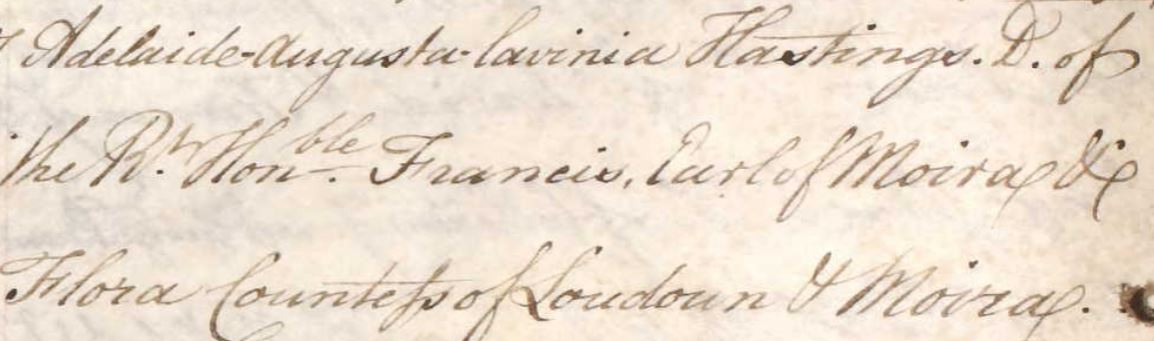 Adelaide-Augusta-lavinia Hastings. D. of
the Rt. Honble. Francis, Earl of Moira &
Flora Countess of Loudoun & Moira.